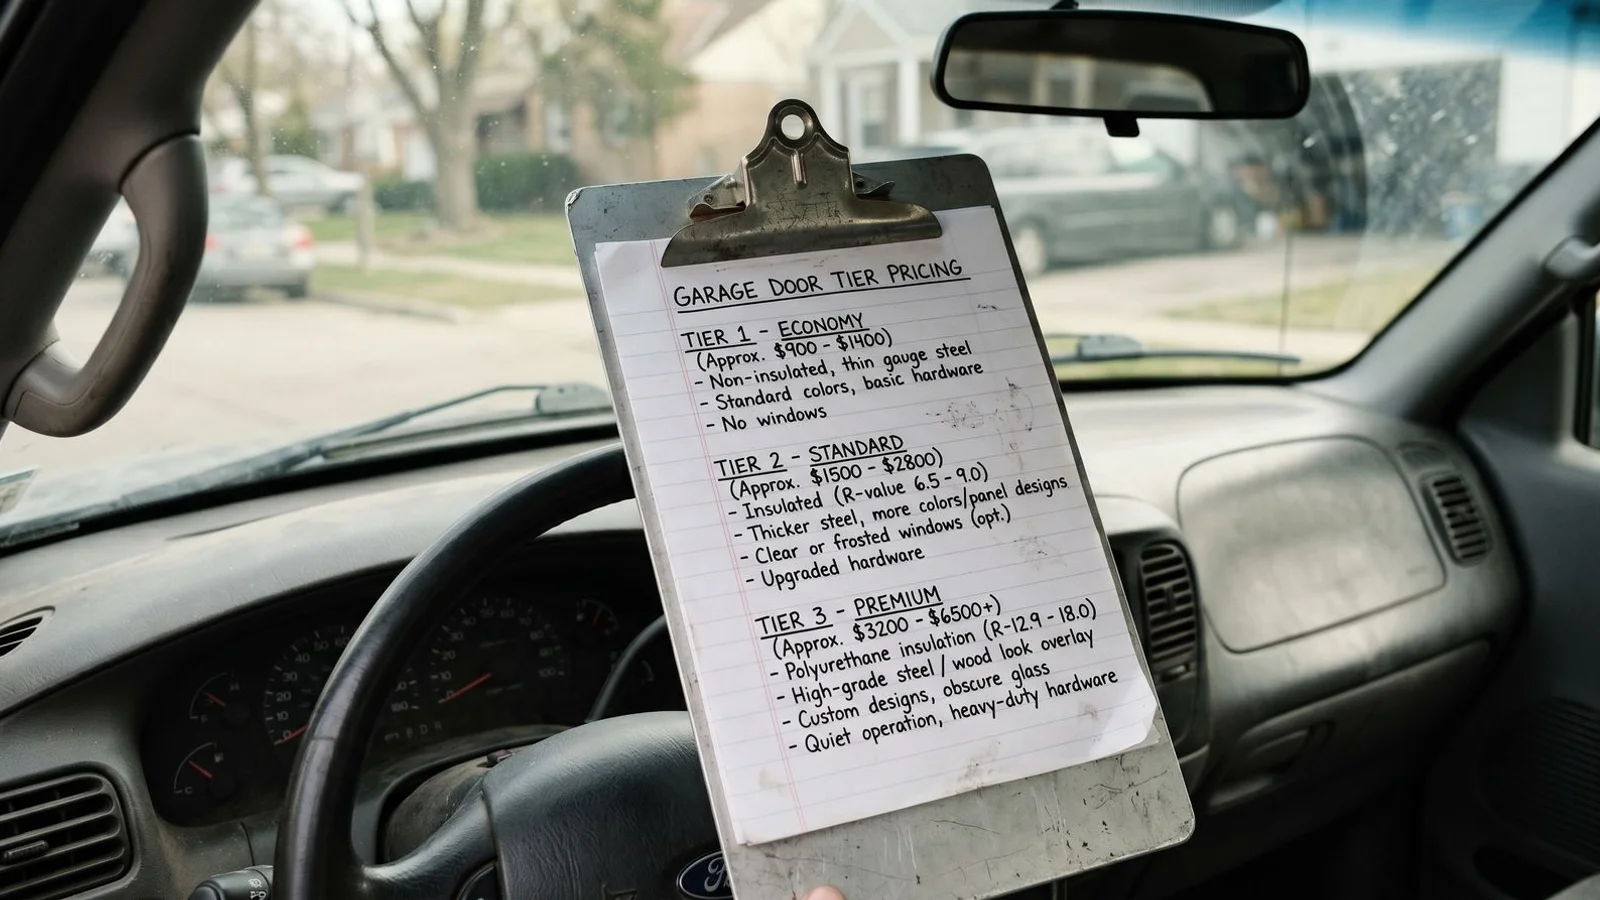 GARAGE DOOR TIER PRICING
TIER 1 - ECONOMY
(Approx. $900 - $1400)
- Non-insulated, thin gauge steel
- Standard colors, basic hardware
- No windows
TIER 2 - STANDARD
(Approx. $1500 - $2800)
- Insulated (R-value 6.5 - 9.0)
- Thicker steel, more colors/panel designs
- Clear or frosted windows (opt.)
- Upgraded hardware
TIER 3 - PREMIUM
(Approx. $3200 - $6500+)
- Polyurethane insulation (R-12.9 - 18.0)
- High-grade steel / wood look overlay
- Custom designs, obscure glass
- Quiet operation, heavy-duty hardware